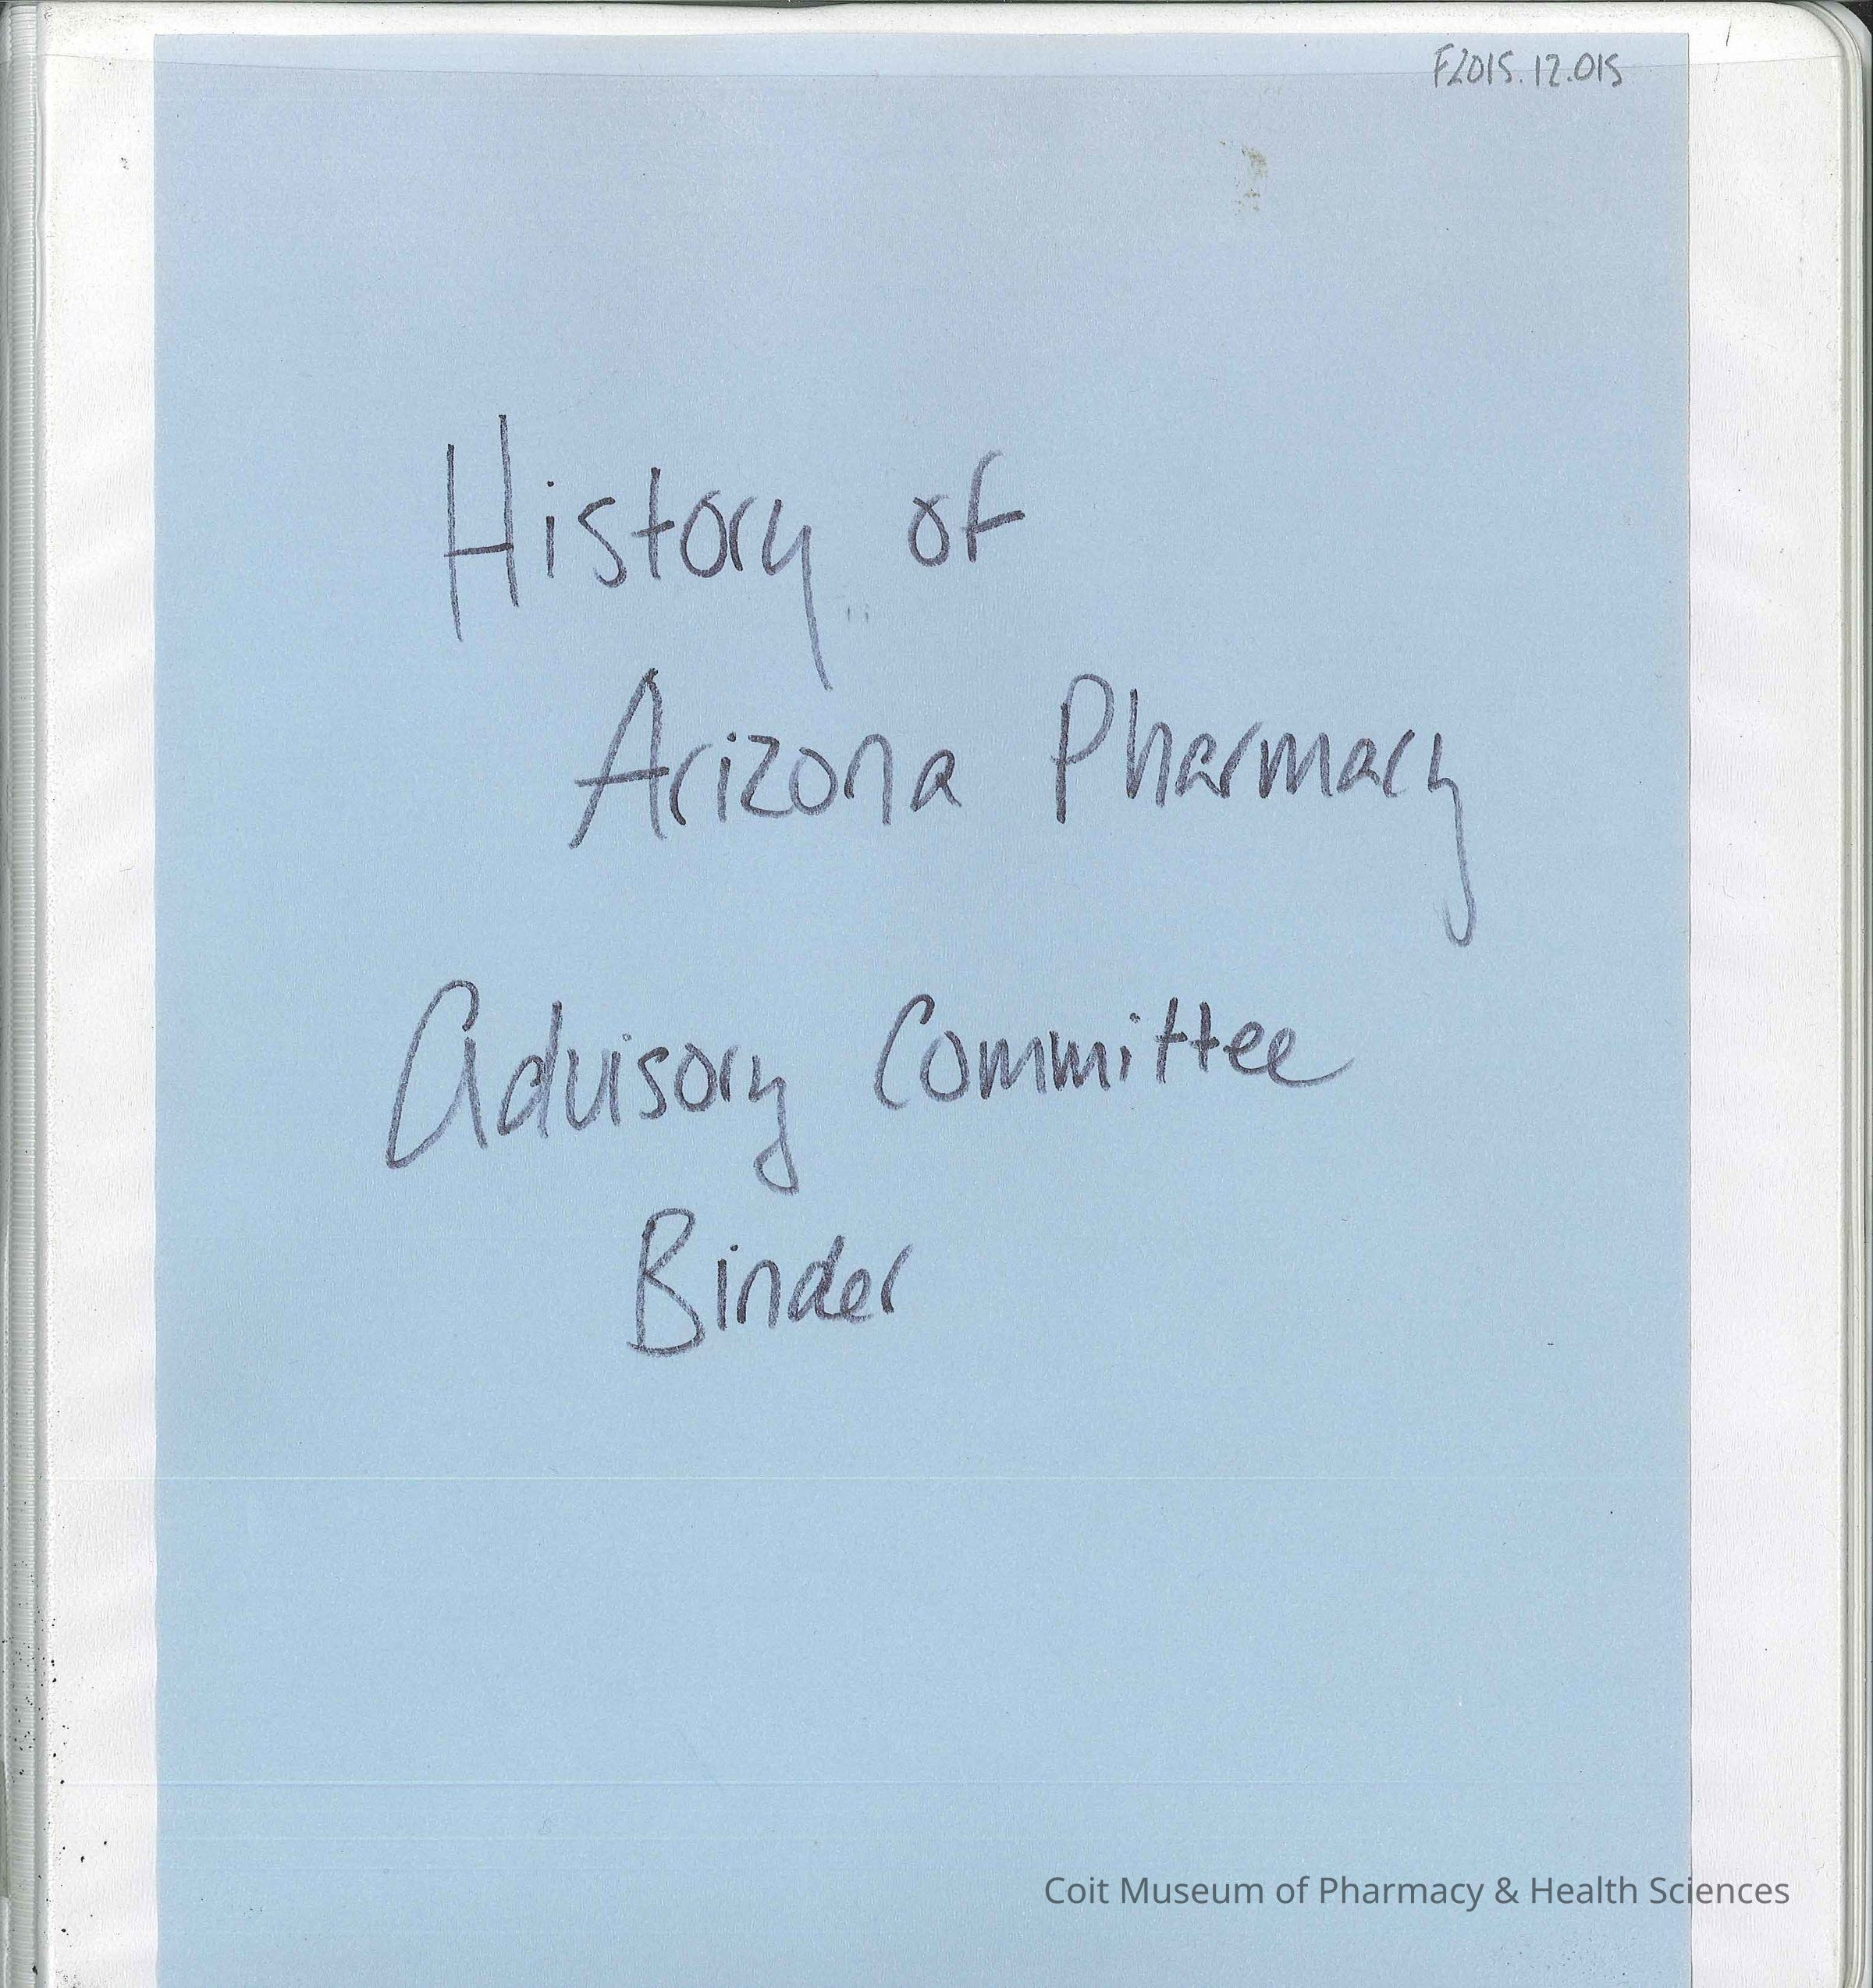 F2015.12.015
History of
Arizona Pharmacy
Advisory Committee
Binder
Coit Museum of Pharmacy & Health Sciences